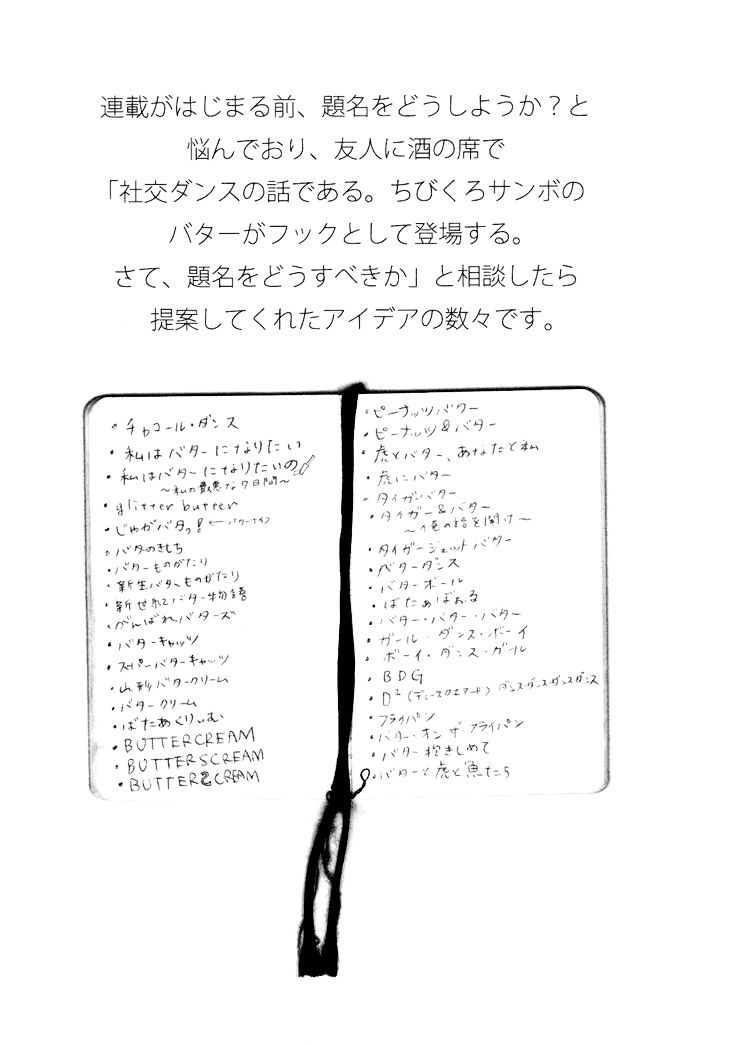 連載がはじまる前、題名をどうしようか？と
悩んでおり、友人に酒の席で
「社交ダンスの話である。ちびくろサンボの
バターがフックとして登場する。
さて、題名をどうすべきか」と相談したら
提案してくれたアイデアの数々です。
・チャコール・ダンス
・私はバターになりたい
・私はバターになりたいの
〜私の最悪な7日間〜
・glitter butter
・じゃがバタっ! ← バターナイフ
・バタのきもち
・バターものがたり
・新生バターものがたり
・新世紀バター物語
・がんばれバターズ
・バターキャッツ
・スーパーバターキャッツ
・山形バタークリーム
・バタークリーム
・ばたあくりぃむ
・BUTTERCREAM
・BUTTERSCREAM
・BUTTER CREAM
・ピーナッツバター
・ピーナッツ&バター
・虎とバター、あなたと私
・虎にバター
・タイガーバター
・タイガー&バター
〜俺の話を聞け〜
・タイガージェットバター
・バターダンス
・バターボール
・ばたあぼぉる
・バター・バター・バター
・ガール・ダンス・ボーイ
・ボーイ・ダンス・ガール
・BDG
・D² (ディースクエアード) ダンス・ダンス・ダンスダンス
・フライパン
・バター・オン ザ フライパン
・バター抱きしめて
・バターと虎と魚たち